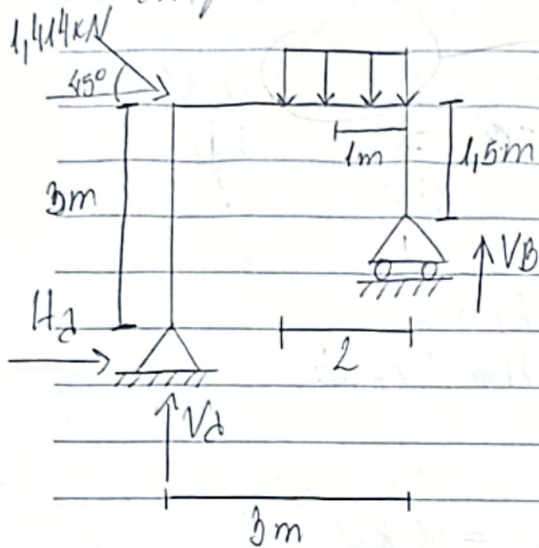 1,414KN
45°
1m
1,5m
3m
VB
HA
2
VA
3m